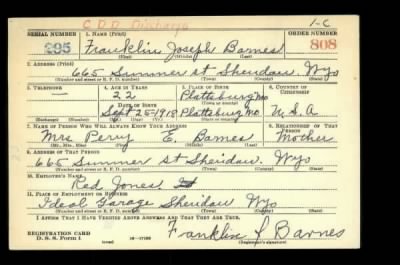 C.D.D. Discharge
1-C
SERIAL NUMBER 1. NAME (Print) ORDER NUMBER
295 Franklin Joseph Barnes 808
(First) (Middle) (Last)
2. ADDRESS (Print)
665 Summer st Sheridan, Wyo
(Number and street or R. F. D. number) (Town) (County) (State)
3. TELEPHONE 4. AGE IN YEARS 5. PLACE OF BIRTH 6. COUNTRY OF CITIZENSHIP
— 22 Plattsburg Mo
DATE OF BIRTH
Sept 25-1918 Plattsburg, Mo U.S.A
(Mo.) (Day) (Yr.) (State or country)
7. NAME OF PERSON WHO WILL ALWAYS KNOW YOUR ADDRESS 8. RELATIONSHIP OF THAT PERSON
Mrs Perry E. Barnes Mother
(Mr., Mrs., Miss) (First) (Middle) (Last)
9. ADDRESS OF THAT PERSON
665 Summer st Sheridan. Wyo
(Number and street or R. F. D. number) (Town) (County) (State)
10. EMPLOYER'S NAME
Red Jones
11. PLACE OF EMPLOYMENT OR BUSINESS
Ideal Garage Sheridan Wyo
(Number and street or R. F. D. number) (Town) (County) (State)
I AFFIRM THAT I HAVE VERIFIED ABOVE ANSWERS AND THAT THEY ARE TRUE.
REGISTRATION CARD
D. S. S. Form 1 16-17105 Franklin J Barnes
(Registrant's signature)